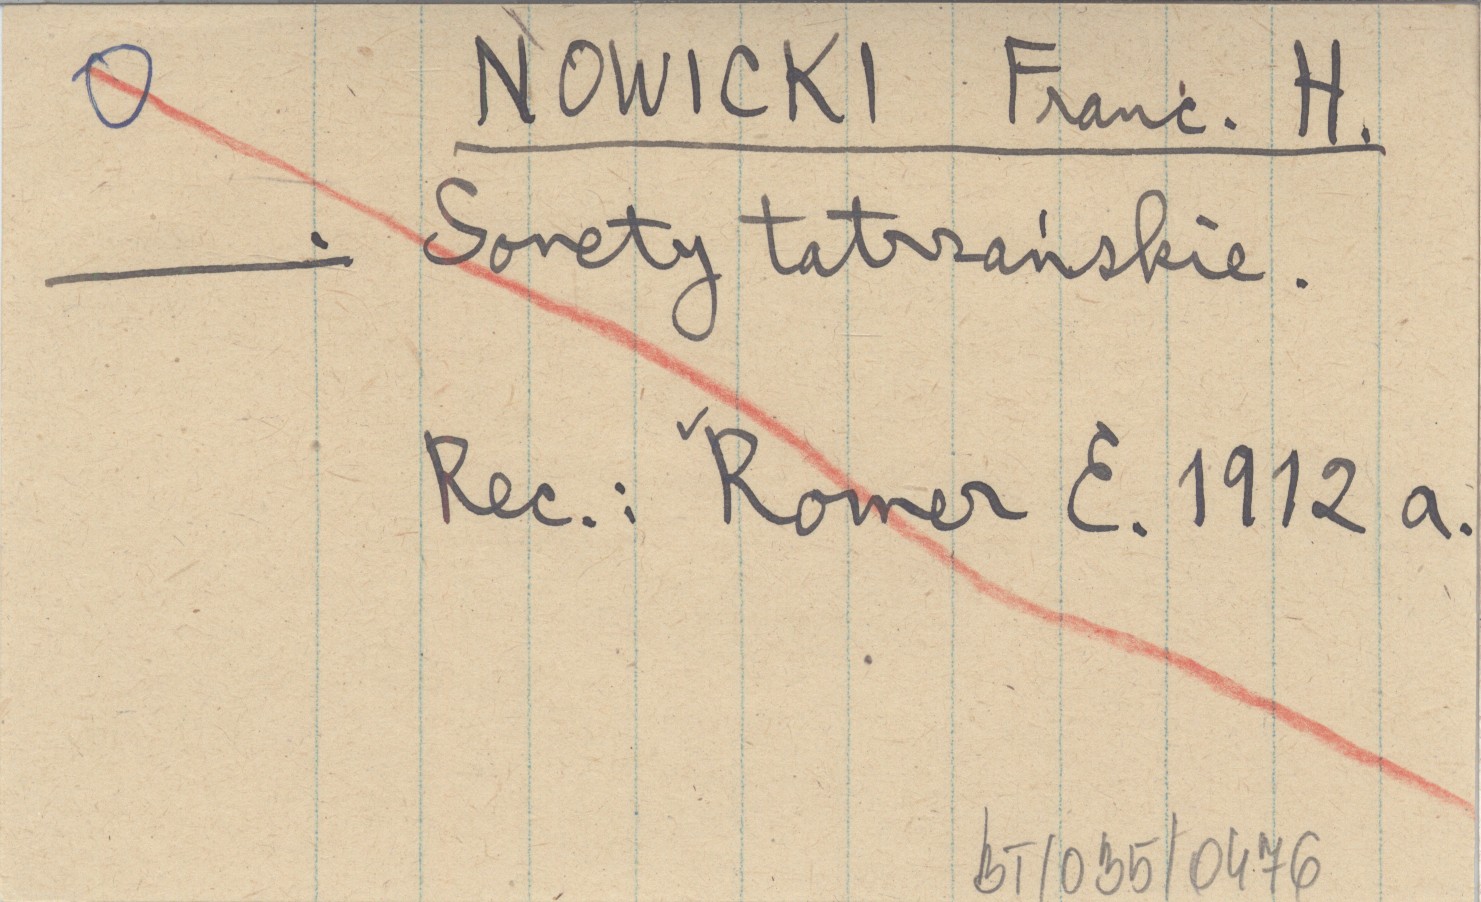 O NOWICKI Franc. H.
: Sonety tatrzańskie.
Rec.: ✓Romer E. 1912 a.
BT/035/0476